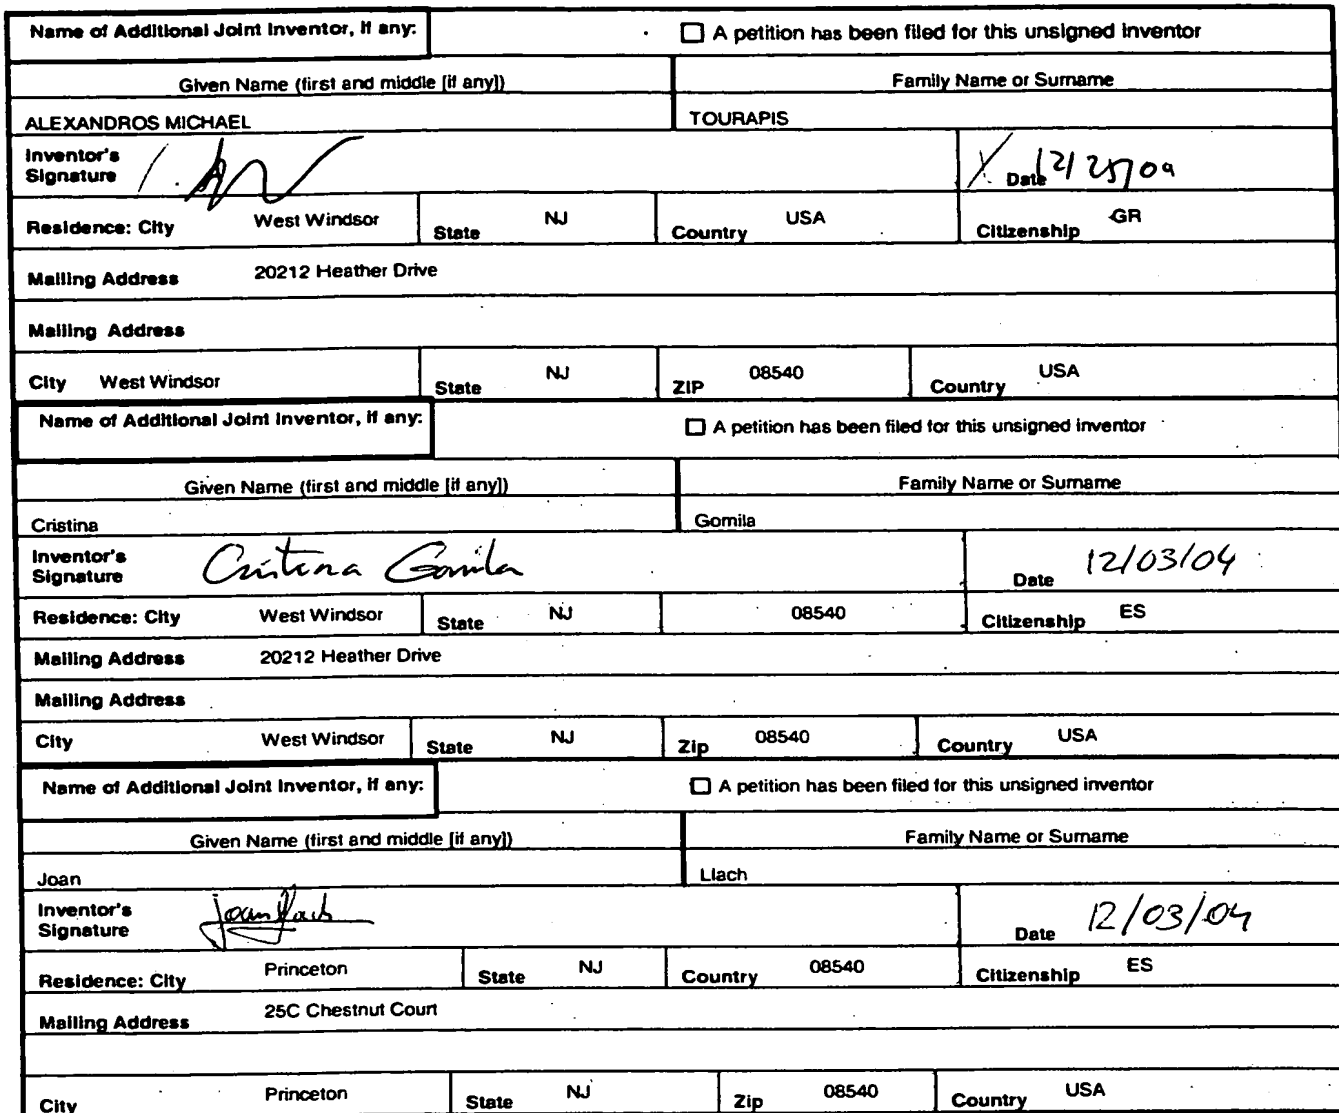 Name of Additional Joint Inventor, if any: ☐ A petition has been filed for this unsigned inventor
Given Name (first and middle [if any]) Family Name or Surname
ALEXANDROS MICHAEL TOURAPIS
Inventor's Signature Date
Residence: City West Windsor State NJ Country USA Citizenship GR
Mailing Address 20212 Heather Drive
Mailing Address
City West Windsor State NJ ZIP 08540 Country USA
Name of Additional Joint Inventor, if any: ☐ A petition has been filed for this unsigned inventor
Given Name (first and middle [if any]) Family Name or Surname
Cristina Gomila
Inventor's Signature Cristina Gomila Date 12/03/04
Residence: City West Windsor State NJ 08540 Citizenship ES
Mailing Address 20212 Heather Drive
Mailing Address
City West Windsor State NJ Zip 08540 Country USA
Name of Additional Joint Inventor, if any: ☐ A petition has been filed for this unsigned inventor
Given Name (first and middle [if any]) Family Name or Surname
Joan Llach
Inventor's Signature Joan Llach Date 12/03/04
Residence: City Princeton State NJ Country 08540 Citizenship ES
Mailing Address 25C Chestnut Court
City Princeton State NJ Zip 08540 Country USA